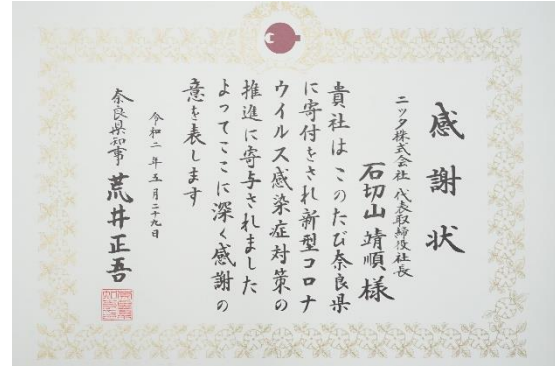 感謝状
ニッタ株式会社 代表取締役社長
石切山 靖順 様
貴社はこのたび奈良県
に寄付をされ新型コロナ
ウイルス感染症対策の
推進に寄与されました
よってここに深く感謝の
意を表します
令和二年五月二十九日
奈良県知事 荒井正吾